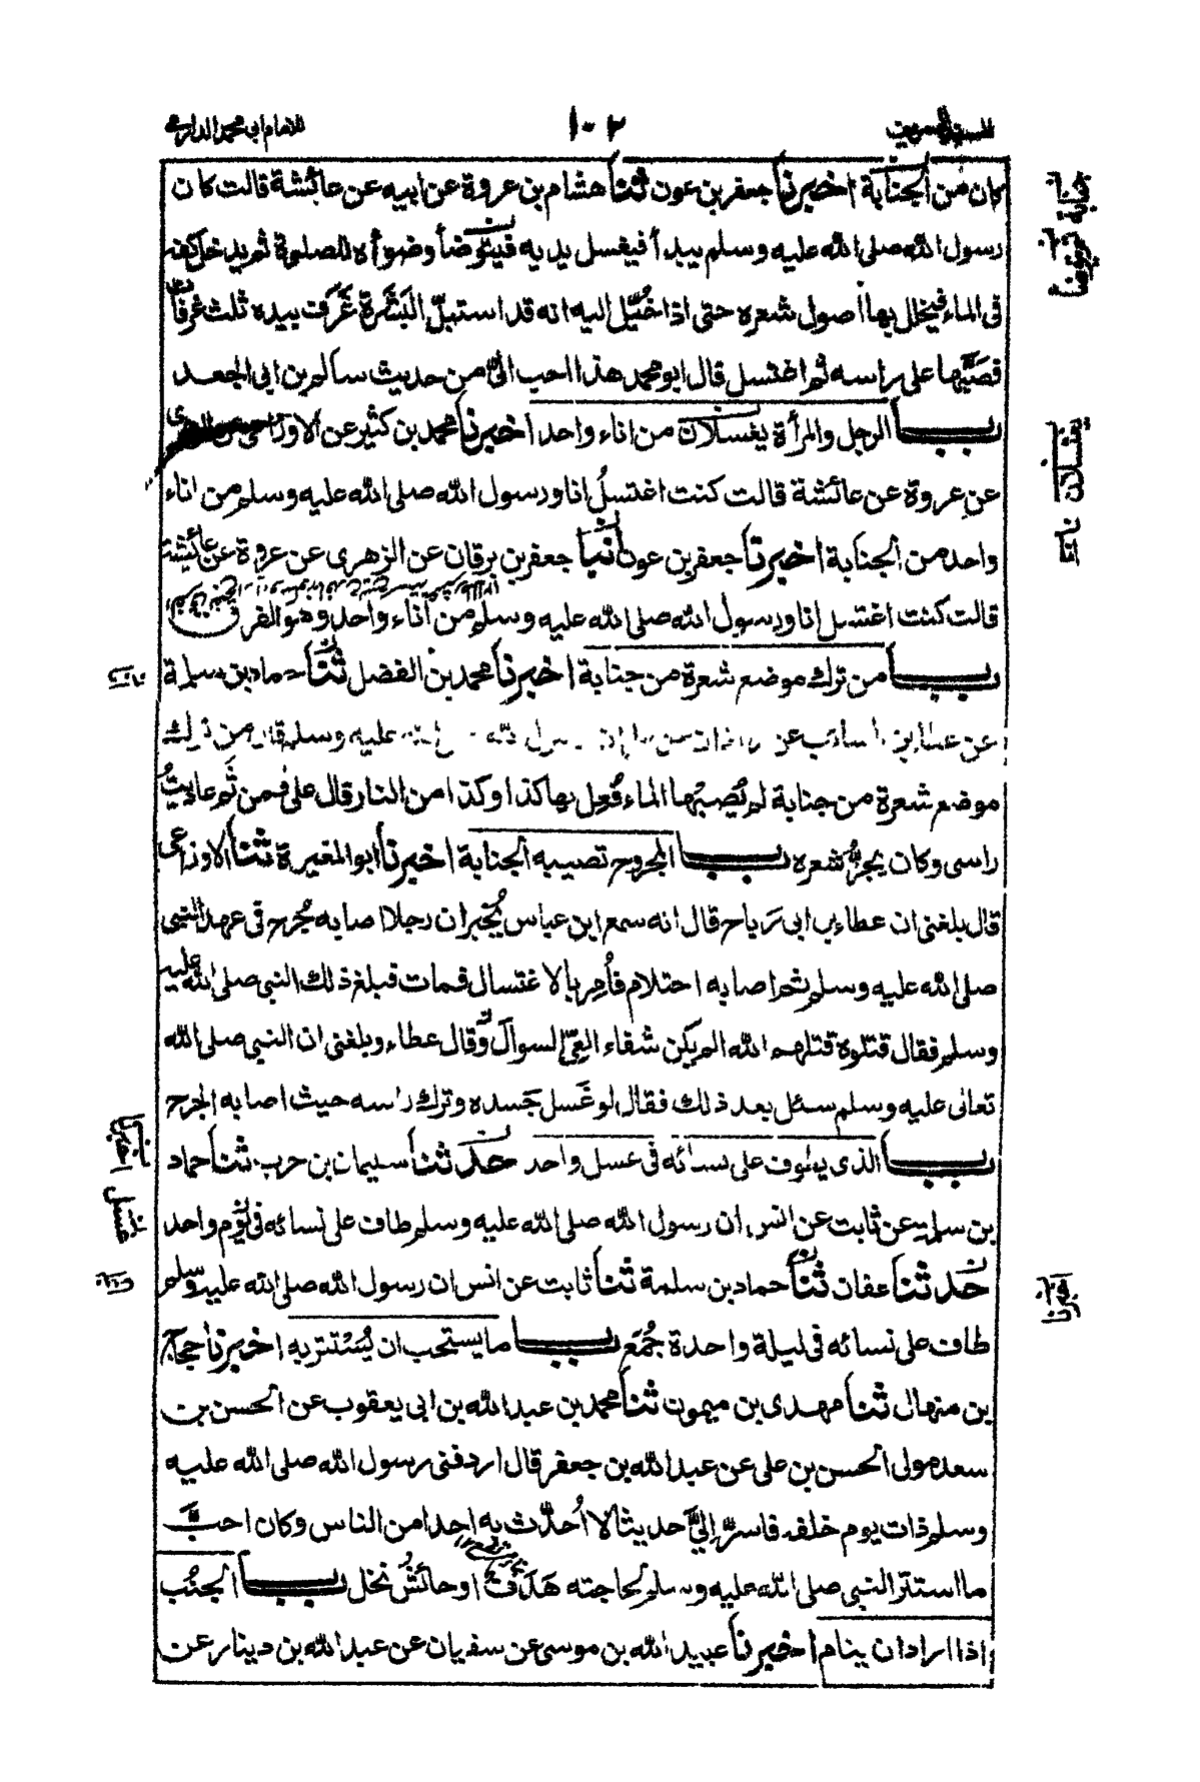 للامام ابى محمد الدارمى
١٠٢
كان من الجنابة اخبرنا جعفر بن عون ثنا هشام بن عروة عن ابيه عن عائشة قالت كان
رسول الله صلى الله عليه وسلم يبدأ فيغسل يديه فيتوضأ وضوأه للصلوة ثم يدخل كفه
فى الماء فيخلل بها أصول شعره حتى اذا خُيّل اليه انه قد استبلّ البَشَرة غَرَف بيده ثلث غرفات
فصَبَّها على راسه ثم اغتسل قال ابو محمد هذا احب الىّ من حديث سالم بن ابى الجعد
باب الرجل والمرأة يغسلان من اناء واحد اخبرنا محمد بن كثير عن الاوزاعى عن الزهرى
عن عروة عن عائشة قالت كنت اغتسلُ انا ورسول الله صلى الله عليه وسلم من اناء
واحد من الجنابة اخبرنا جعفر بن عون انبا جعفر بن برقان عن الزهرى عن عروة عن عائشة
قالت كنت اغتسل انا ورسول الله صلى الله عليه وسلم من اناء واحد وهو الفرق
باب من ترك موضع شعرة من جنابة اخبرنا محمد بن الفضل ثنا حماد بن سلمة
عن عطاء بن السائب عن زاذان عن على ان رسول الله صلى الله عليه وسلم قال من ترك
موضع شعرة من جنابة لم يُصِبْها الماء فُعِل بها كذا وكذا من النار قال على فمن ثَم عاديتُ
راسى وكان يجزُّ شعره باب المجروح تصيبه الجنابة اخبرنا ابو المغيرة ثنا الاوزاعى
قال بلغنى ان عطاء بن ابى رَباح قال انه سمع ابن عباس يُخبر ان رجلا اصابه جُرح فى عهد النبى
صلى الله عليه وسلم ثم اصابه احتلام فأُمِر بالاغتسال فمات فبلغ ذلك النبى صلى الله عليه
وسلم فقال قتلوه قتلهم الله الم يكن شفاء العِىّ السوال وقال عطاء وبلغنى ان النبى صلى الله
تعالى عليه وسلم سئل بعد ذلك فقال لو غَسل جَسده وترك راسه حيث اصابه الجرح
باب الذى يطوف على نسائه فى غسل واحد حدثنا سليمان بن حرب ثنا حماد
بن سلمة عن ثابت عن انس ان رسول الله صلى الله عليه وسلم طاف على نسائه فى يوم واحد
حدثنا عفان ثنا حماد بن سلمة ثنا ثابت عن انس ان رسول الله صلى الله عليه وسلم
طاف على نسائه فى ليلة واحدة جُمَع باب ما يستحب ان يُسْتتر به اخبرنا حجاج
بن منهال ثنا مهدى بن ميمون ثنا محمد بن عبد الله بن ابى يعقوب عن الحسن بن
سعد مولى الحسن بن على عن عبد الله بن جعفر قال اردفنى رسول الله صلى الله عليه
وسلم ذات يوم خلفه فاسرّ إلىَّ حديثا لا أُحدّث به احدا من الناس وكان احبَّ
ما استتر النبى صلى الله عليه وسلم لحاجته هَدَفٌ او حائشُ نخل باب الجنُب
اذا اراد ان ينام اخبرنا عبيد الله بن موسى عن سفيان عن عبد الله بن دينار عن
يغتسلان
اخبرنا